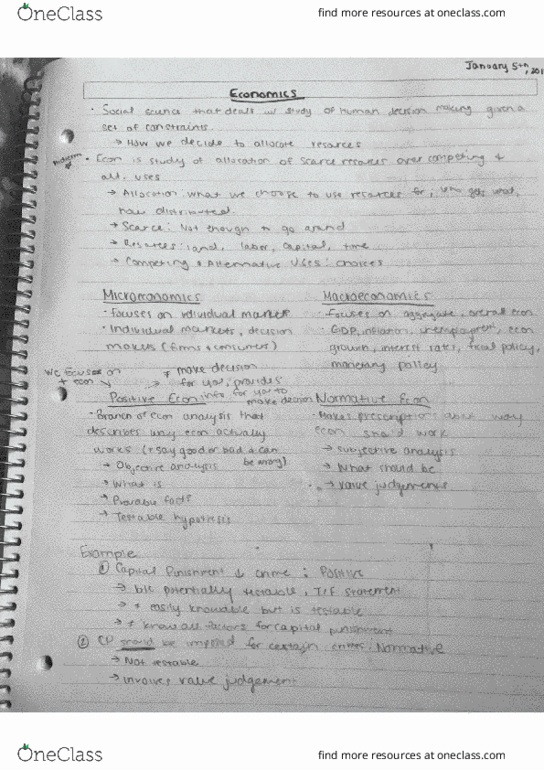 OneClass
find more resources at oneclass.com
January 5th, 201
Economics
• Social science that deals w/ study of human decision making given a
set of constraints.
→ How we decide to allocate resources
• Econ is study of allocation of scarce resources over competing +
alt. uses
→ Allocation: what we choose to use resources for, who gets what,
how distributed.
→ Scarce: Not enough to go around
→ Resources: land, labor, capital, time
→ Competing + Alternative Uses: choices
Microeconomics
• Focuses on individual market
• Individual markets, decision
makers (firms + consumers)
Macroeconomics
• Focuses on aggregate, overall econ
• GDP, inflation, unemployment, econ
growth, interest rates, fiscal policy,
monetary policy
we focused on
+ econ
≠ make decision
for you, provides
info for you to
make decision
Positive Econ
• Branch of econ analysis that
describes way econ actually
works (≠ say good or bad + can
be wrong)
→ Objective analysis
→ What is
→ Provable facts
→ Testable hypothesis
Normative Econ
• Makes prescriptions about way
econ should work
→ subjective analysis
→ What should be
→ value judgements
Example
① Capital Punishment ↓ crime : Positive
→ b/c potentially testable, T/F statement
→ ≠ easily knowable but is testable
→ ≠ know all factors for capital punishment
② CP should be imposed for certain crimes: Normative
→ Not testable
→ involves value judgement
OneClass
find more resources at oneclass.com